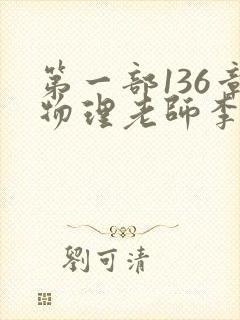 第一部136章
物理老師李
劉可清